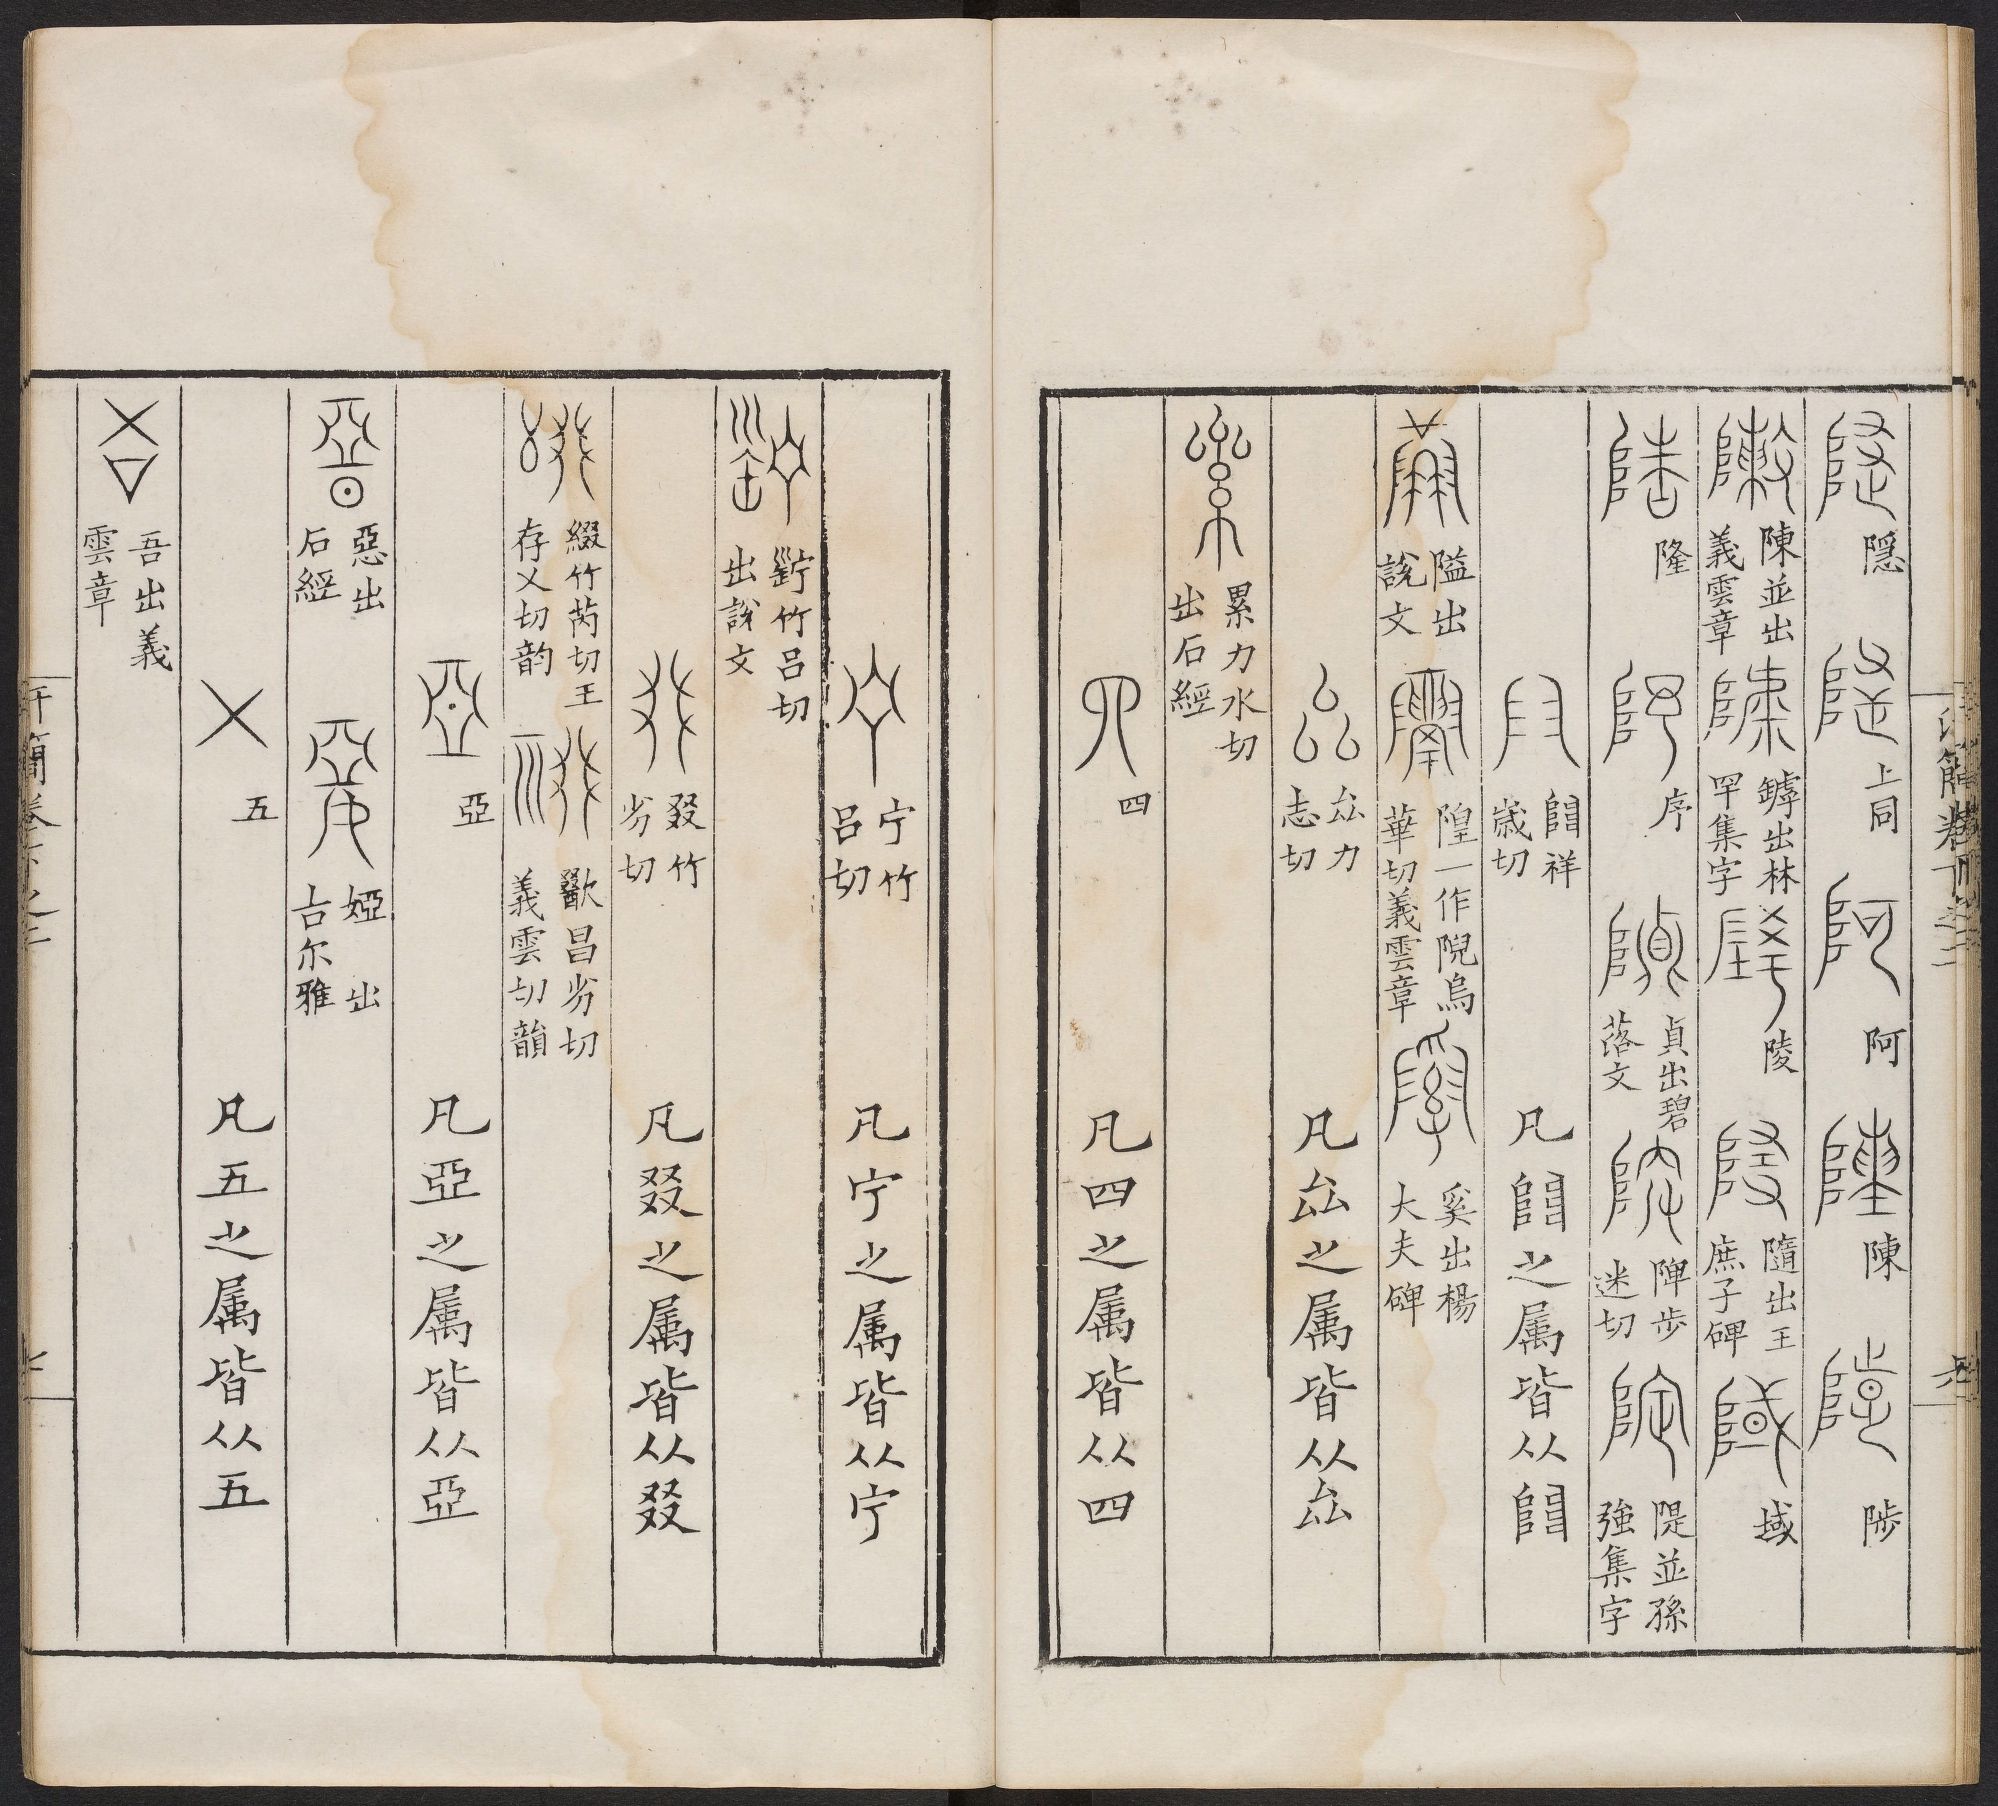 隱 上同 阿 陳 陟
陳並出義雲章 鏬出林罕集字 陵 隨出王庶子碑 域
隆 序 貞出碧落文 陴步迷切 隄並孫強集字
𨺅祥歲切 凡𨺅之属皆从𨺅
隘出說文 隍一作隉烏華切義雲章 奚出楊大夫碑
厽力志切 凡厽之属皆从厽
累力水切出石經
四 凡四之属皆从四
宁竹呂切 凡宁之属皆从宁
竹呂切出說文
叕竹劣切 凡叕之属皆从叕
綴竹芮切王存乂切韵 歠昌劣切義雲切韻
亞 凡亞之属皆从亞
惡出石經 婭出古尔雅
五 凡五之属皆从五
吾出義雲章
汗簡卷下之二